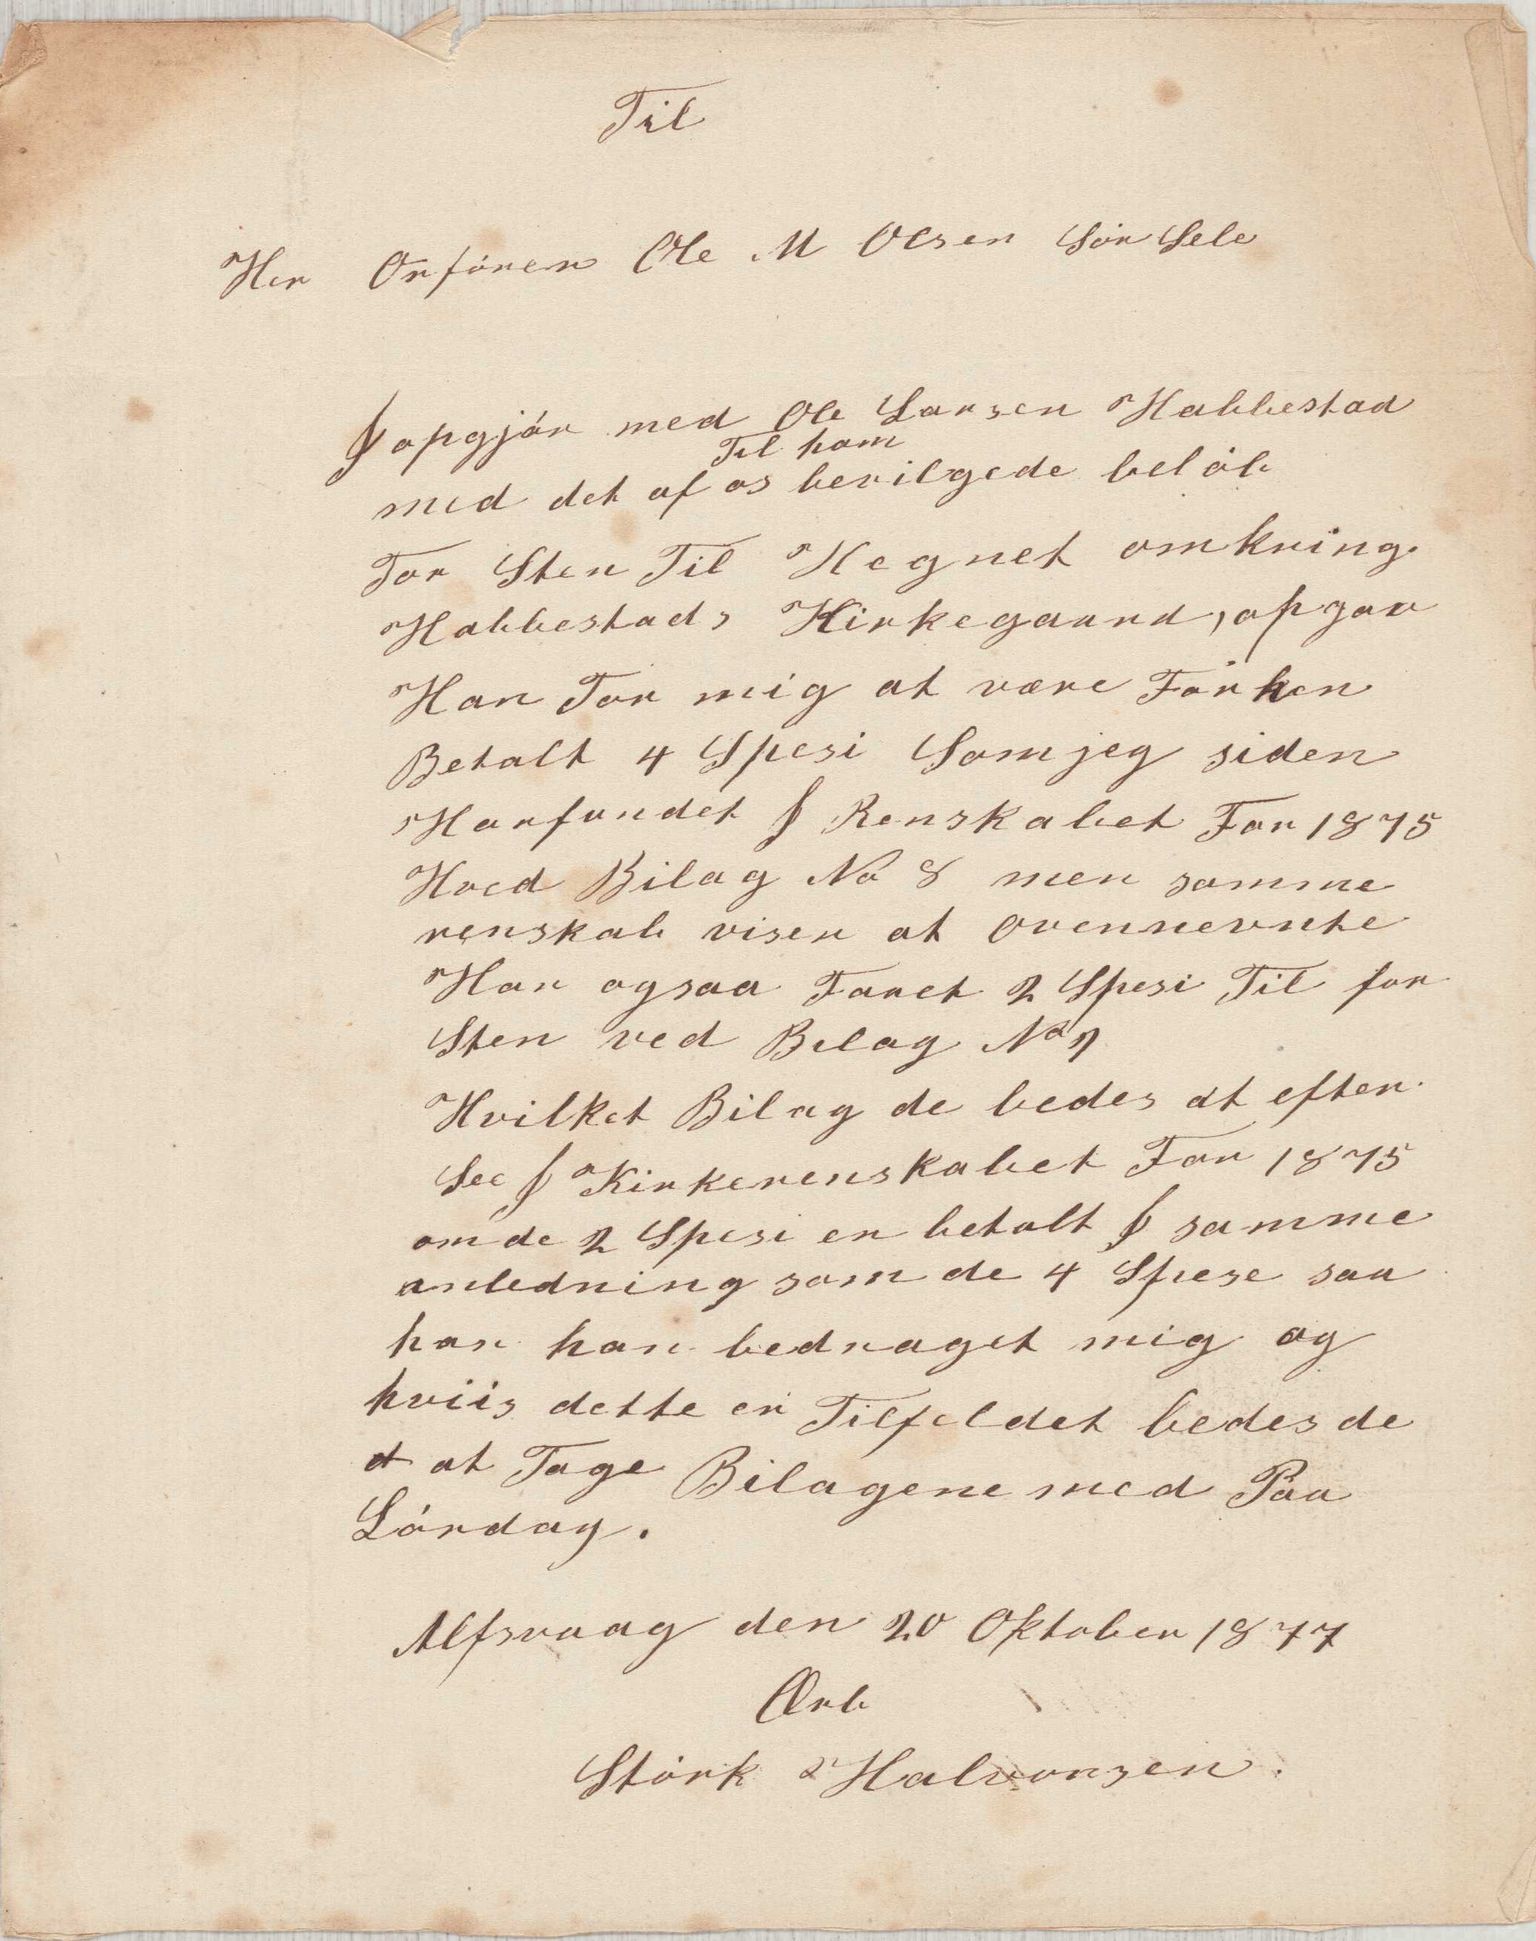 Til
Her Orfören Ole M Olsen Sör Sele
I opgjör med Ole Larsen Habbestad
Til ham
med det af os bevilgede belöb
For Sten Til Hegnet omkring
Habbestads Kirkegaard, opgav
Han For mig at være Forhen
Betalt 4 Spesi Som jeg siden
Harfundet I Renskabet For 1875
Hved Bilag No 8 men samme
renskab viser at ovennevnte
Har ogsaa Faaet 2 Spesi Til for
Sten ved Bilag No 7
Hvilket Bilag de bedes at efter
See I Kirkerenskabet For 1875
om de 2 Spesi er betalt I samme
anledning som de 4 Spese saa
har han bedraget mig og
hviis dette er Tilfeldet bedes de
at Tage Bilagene med Paa
Lördag.
Alfsvaag den 20 Oktober 1877
Ærb
Störk Halvorsen.